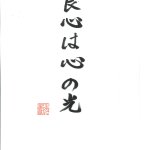 良心は心の光